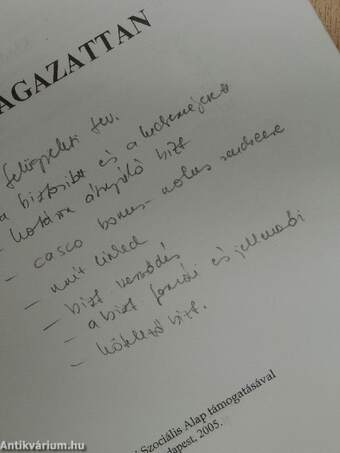 AGAZATTAN
felügyeleti tev.
a biztosító és a
- határon átnyúló bizt
- casco bonus-malus rendszere
- unit linked
- bizt
- a bizt formái és jellemzői
- kötelező bizt.
Szociális Alap támogatásával
dapest, 2005.
Antikvárium.hu